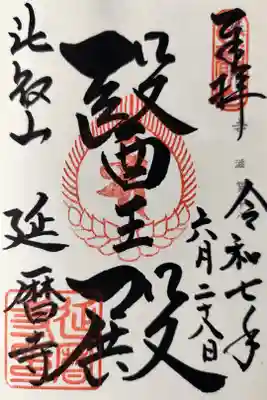 奉拝
令和七年
六月二十八日
醫王殿
比叡山
延暦寺